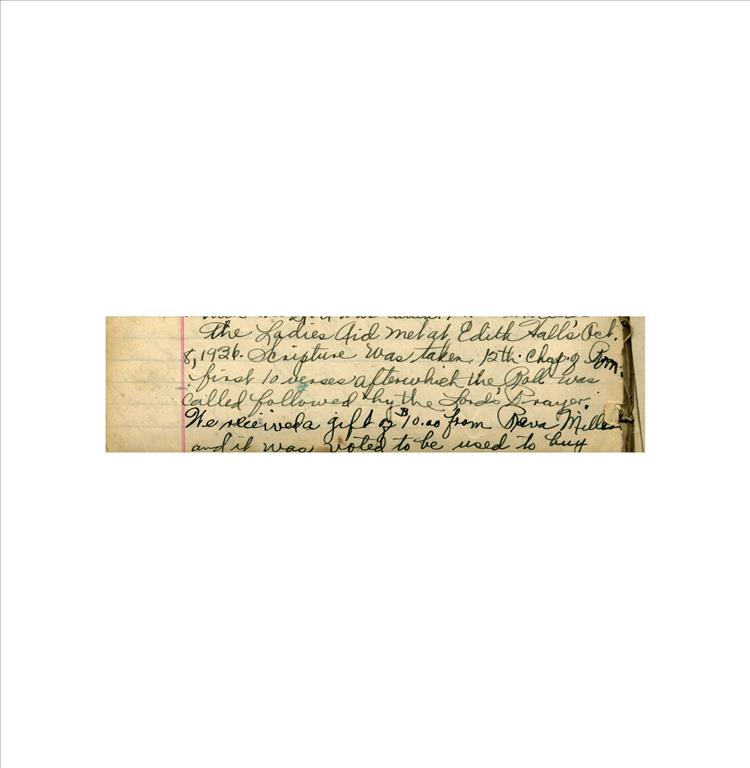 the Ladies Aid met at Edith Hall's Oct.
8, 1936. Scripture was taken 12th. Chap. of Rom.
first 10 verses after which the Roll was
called followed by the Lords Prayer.
We received a gift of $10.00 from Reva Miller
and it was voted to be used to buy